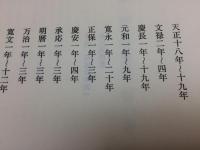 天正十八年～十九年
文禄二年～四年
慶長一年～十九年
元和一年～九年
寛永一年～二十年
正保一年～三年
慶安一年～四年
承応一年～三年
明暦一年～三年
万治一年～三年
寛文一年～十二年